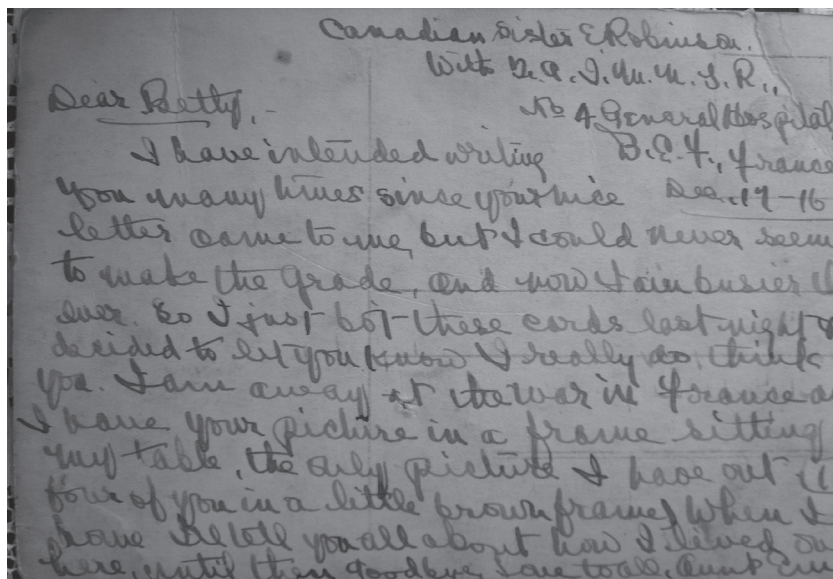 Canadian Sister E Robinson.
With Q.A.I.M.N.S.R.,
Dear Betty,-
No 4 General Hospital
I have intended writing
B.E.F., France
you many times since your nice
Dec. 17-16
letter came to me, but I could never seem
to make the grade, and now I am busier
ever. So I just bot these cards last night
decided to let you know I really do think
you. I am away at the war in France
I have your picture in a frame sitting
my table, the only picture I have out
four of you in a little brown frame) When I
home I'll tell you all about how I lived
here, until then Goodbye, Love to all, Aunt Em